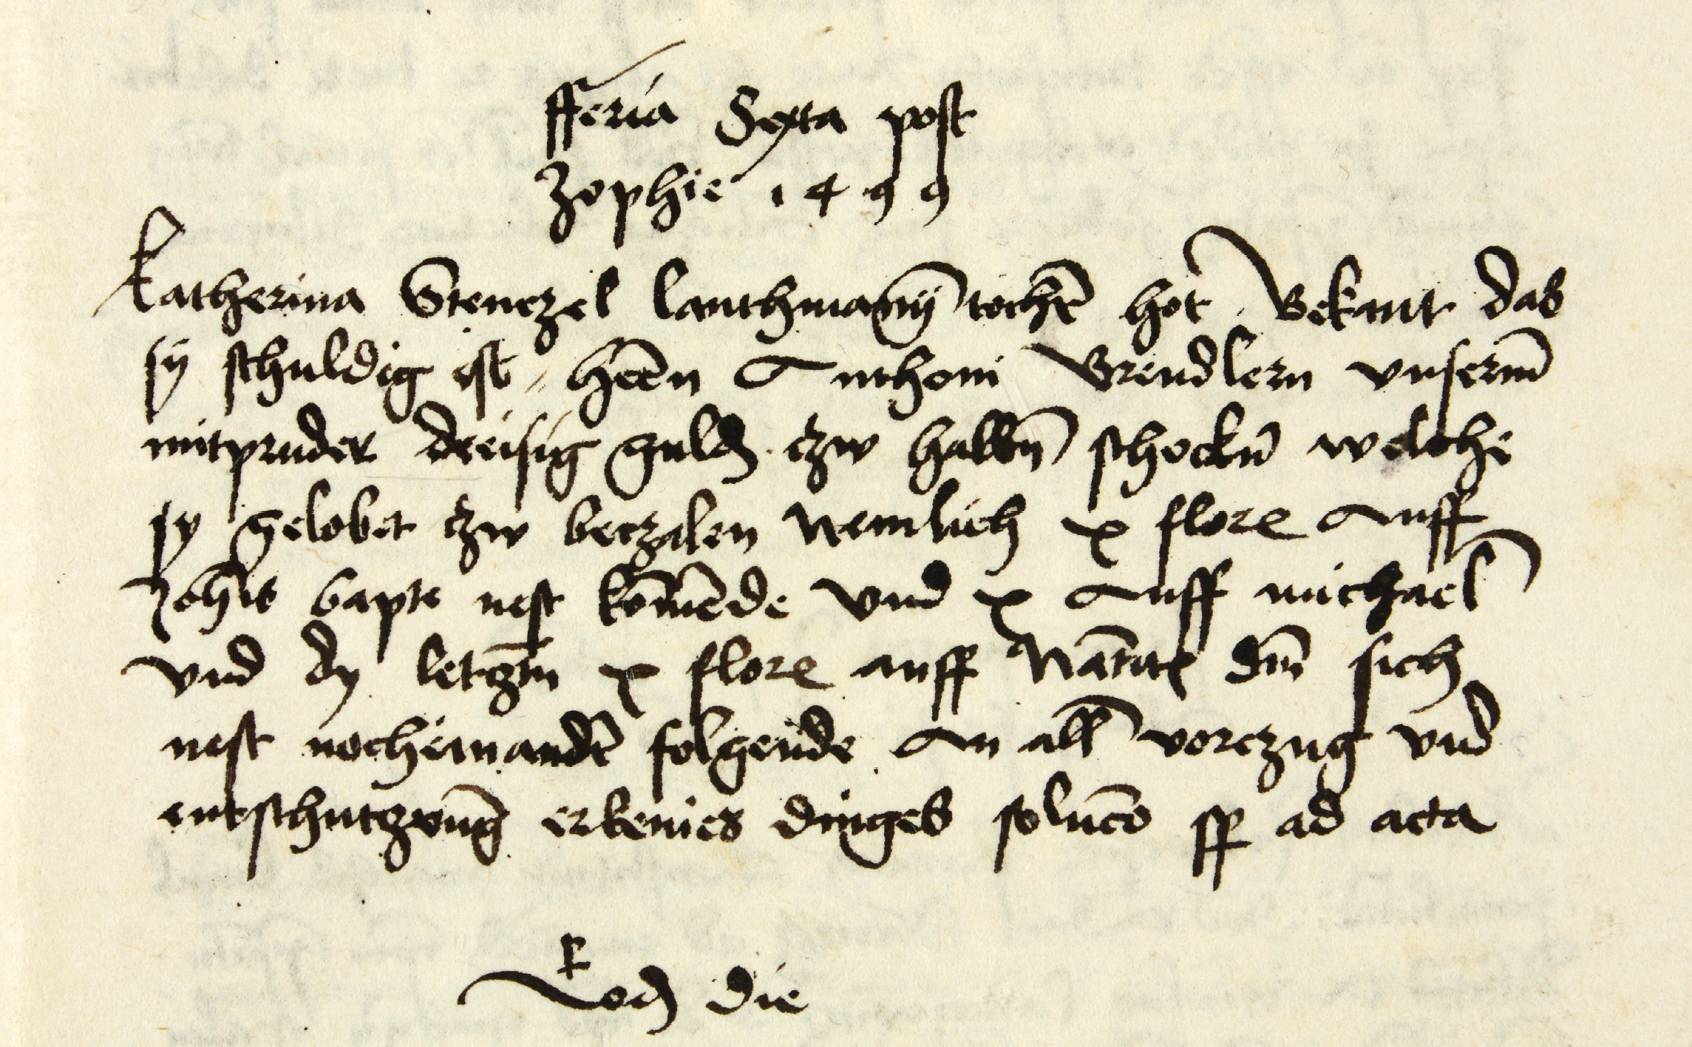 fferia Sexta post
Zophie 1499
Katherina Stenczel lanthmanÿ tochẽ hot Bekant das
sÿ schuldig ist herñ Anthoni Brendlern vnserm̃
mitpruder dreisig guld czw halbñ schockñ welche
sy gelobet czw beczalen Nemlich x flore Auff
Joh̃is bapte nest kom̃ẽde vnd x Auff michael
vnd dy letcztñ x flore auff Natĩte dm̃ sich
nest nocheinandẽ folgende An all vorczug vnd
entschutczung̃ erkenies dinges ad acta
Eod die